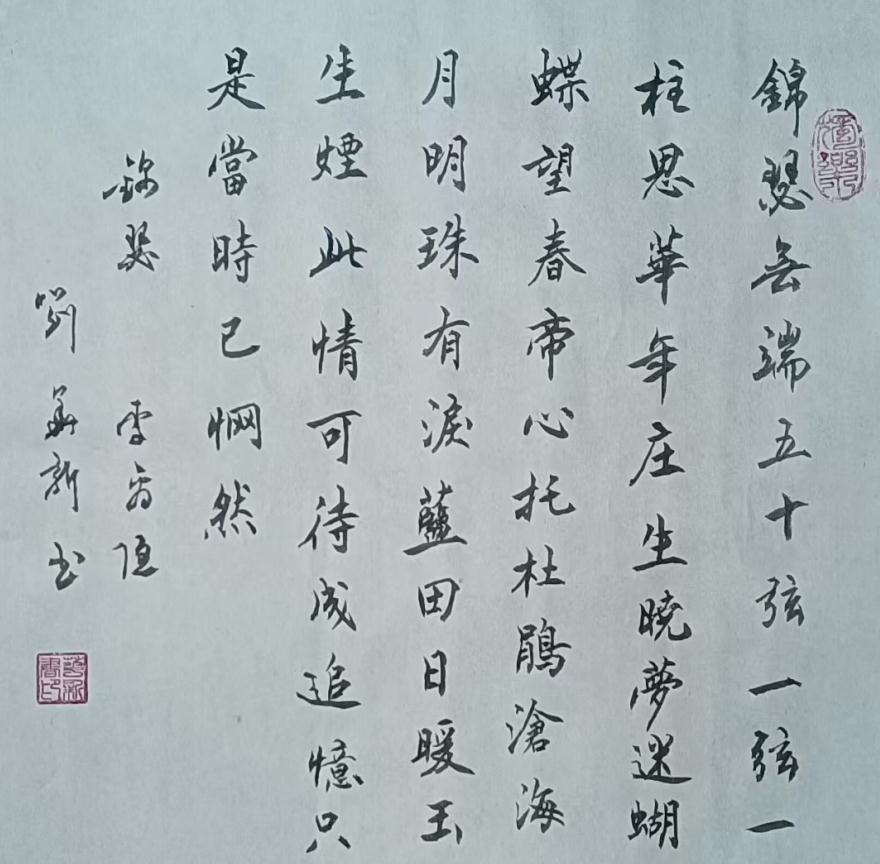 錦瑟無端五十弦一弦一
柱思華年庄生曉夢迷蝴
蝶望春帝心托杜鵑滄海
月明珠有淚藍田日暖玉
生煙此情可待成追憶只
是當時已惘然
錦瑟 李商隱
劉華新书